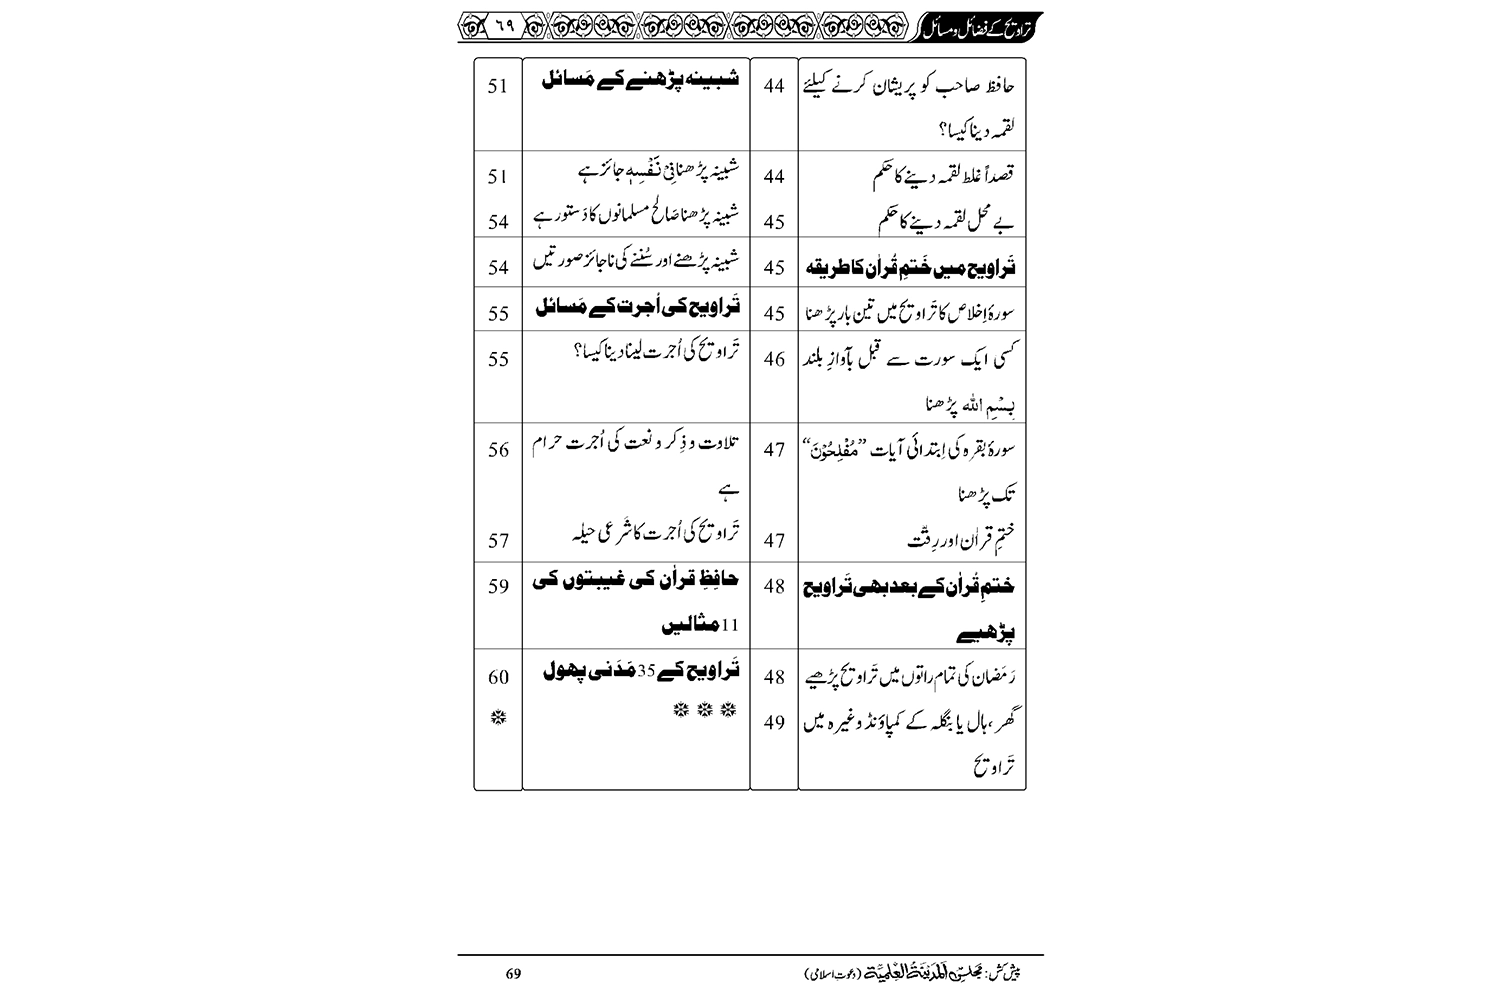 تراویح کے فضائل و مسائل ٦٩
حافظ صاحب کو پریشان کرنے کیلئے 44
لقمہ دینا کیسا؟
قصداً غلط لقمہ دینے کا حکم 44
بے محل لقمہ دینے کا حکم 45
تَراویح میں خَتمِ قُراٰن کا طریقہ 45
سورۂ اِخلاص کا تَراویح میں تین بار پڑھنا 45
کسی ایک سورت سے قبل بآوازِ بلند 46
بِسْمِ اللہ پڑھنا
سورۂ بقرہ کی اِبتدائی آیات ”مُفْلِحُوْنَ“ 47
تک پڑھنا
ختمِ قراٰن اور رِقّت 47
ختمِ قُراٰن کے بعد بھی تَراویح 48
پڑھیے
رَمَضان کی تمام راتوں میں تَراویح پڑھیے 48
گھر، ہال یا بنگلہ کے کمپاؤنڈ وغیرہ میں 49
تَراویح
شبینہ پڑھنے کے مَسائل 51
شبینہ پڑھنا فِیْ نَفْسِہٖ جائز ہے 51
شبینہ پڑھنا صَالح مسلمانوں کا دَستور ہے 54
شبینہ پڑھنے اور سُننے کی ناجائز صورتیں 54
تَراویح کی اُجرت کے مَسائل 55
تَراویح کی اُجرت لینا دینا کیسا؟ 55
تلاوت و ذِکر و نعت کی اُجرت حرام 56
ہے
تَراویح کی اُجرت کا شَرعی حیلہ 57
حافِظِ قراٰن کی غیبتوں کی 59
11 مثالیں
تَراویح کے 35 مَدَنی پھول 60
❇ ❇ ❇ ❇
پیش کش: مجلس المدینۃ العلمیۃ (دعوتِ اسلامی) 69